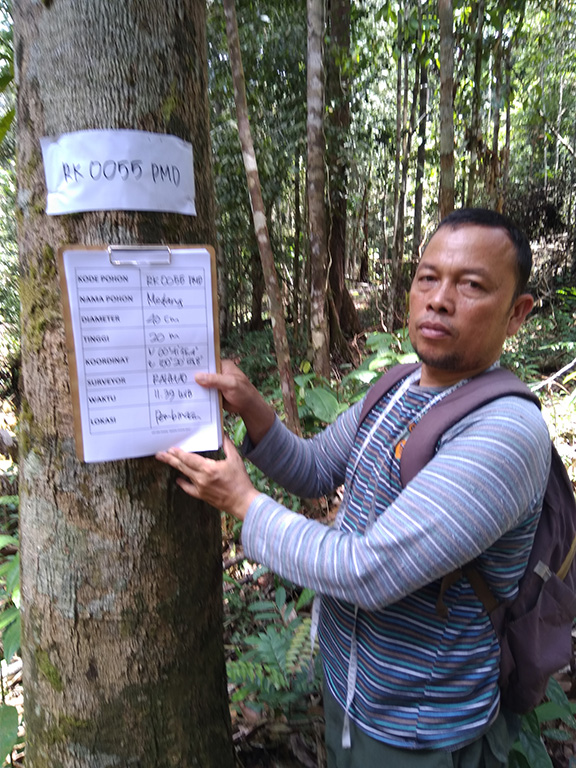 RK 0055 PMD
KODE POHON RK 0055 PMD
NAMA POHON Medang
DIAMETER 40 cm
TINGGI 20 m
KOORDINAT
SURVEYOR
WAKTU 11.39 WIB
LOKASI